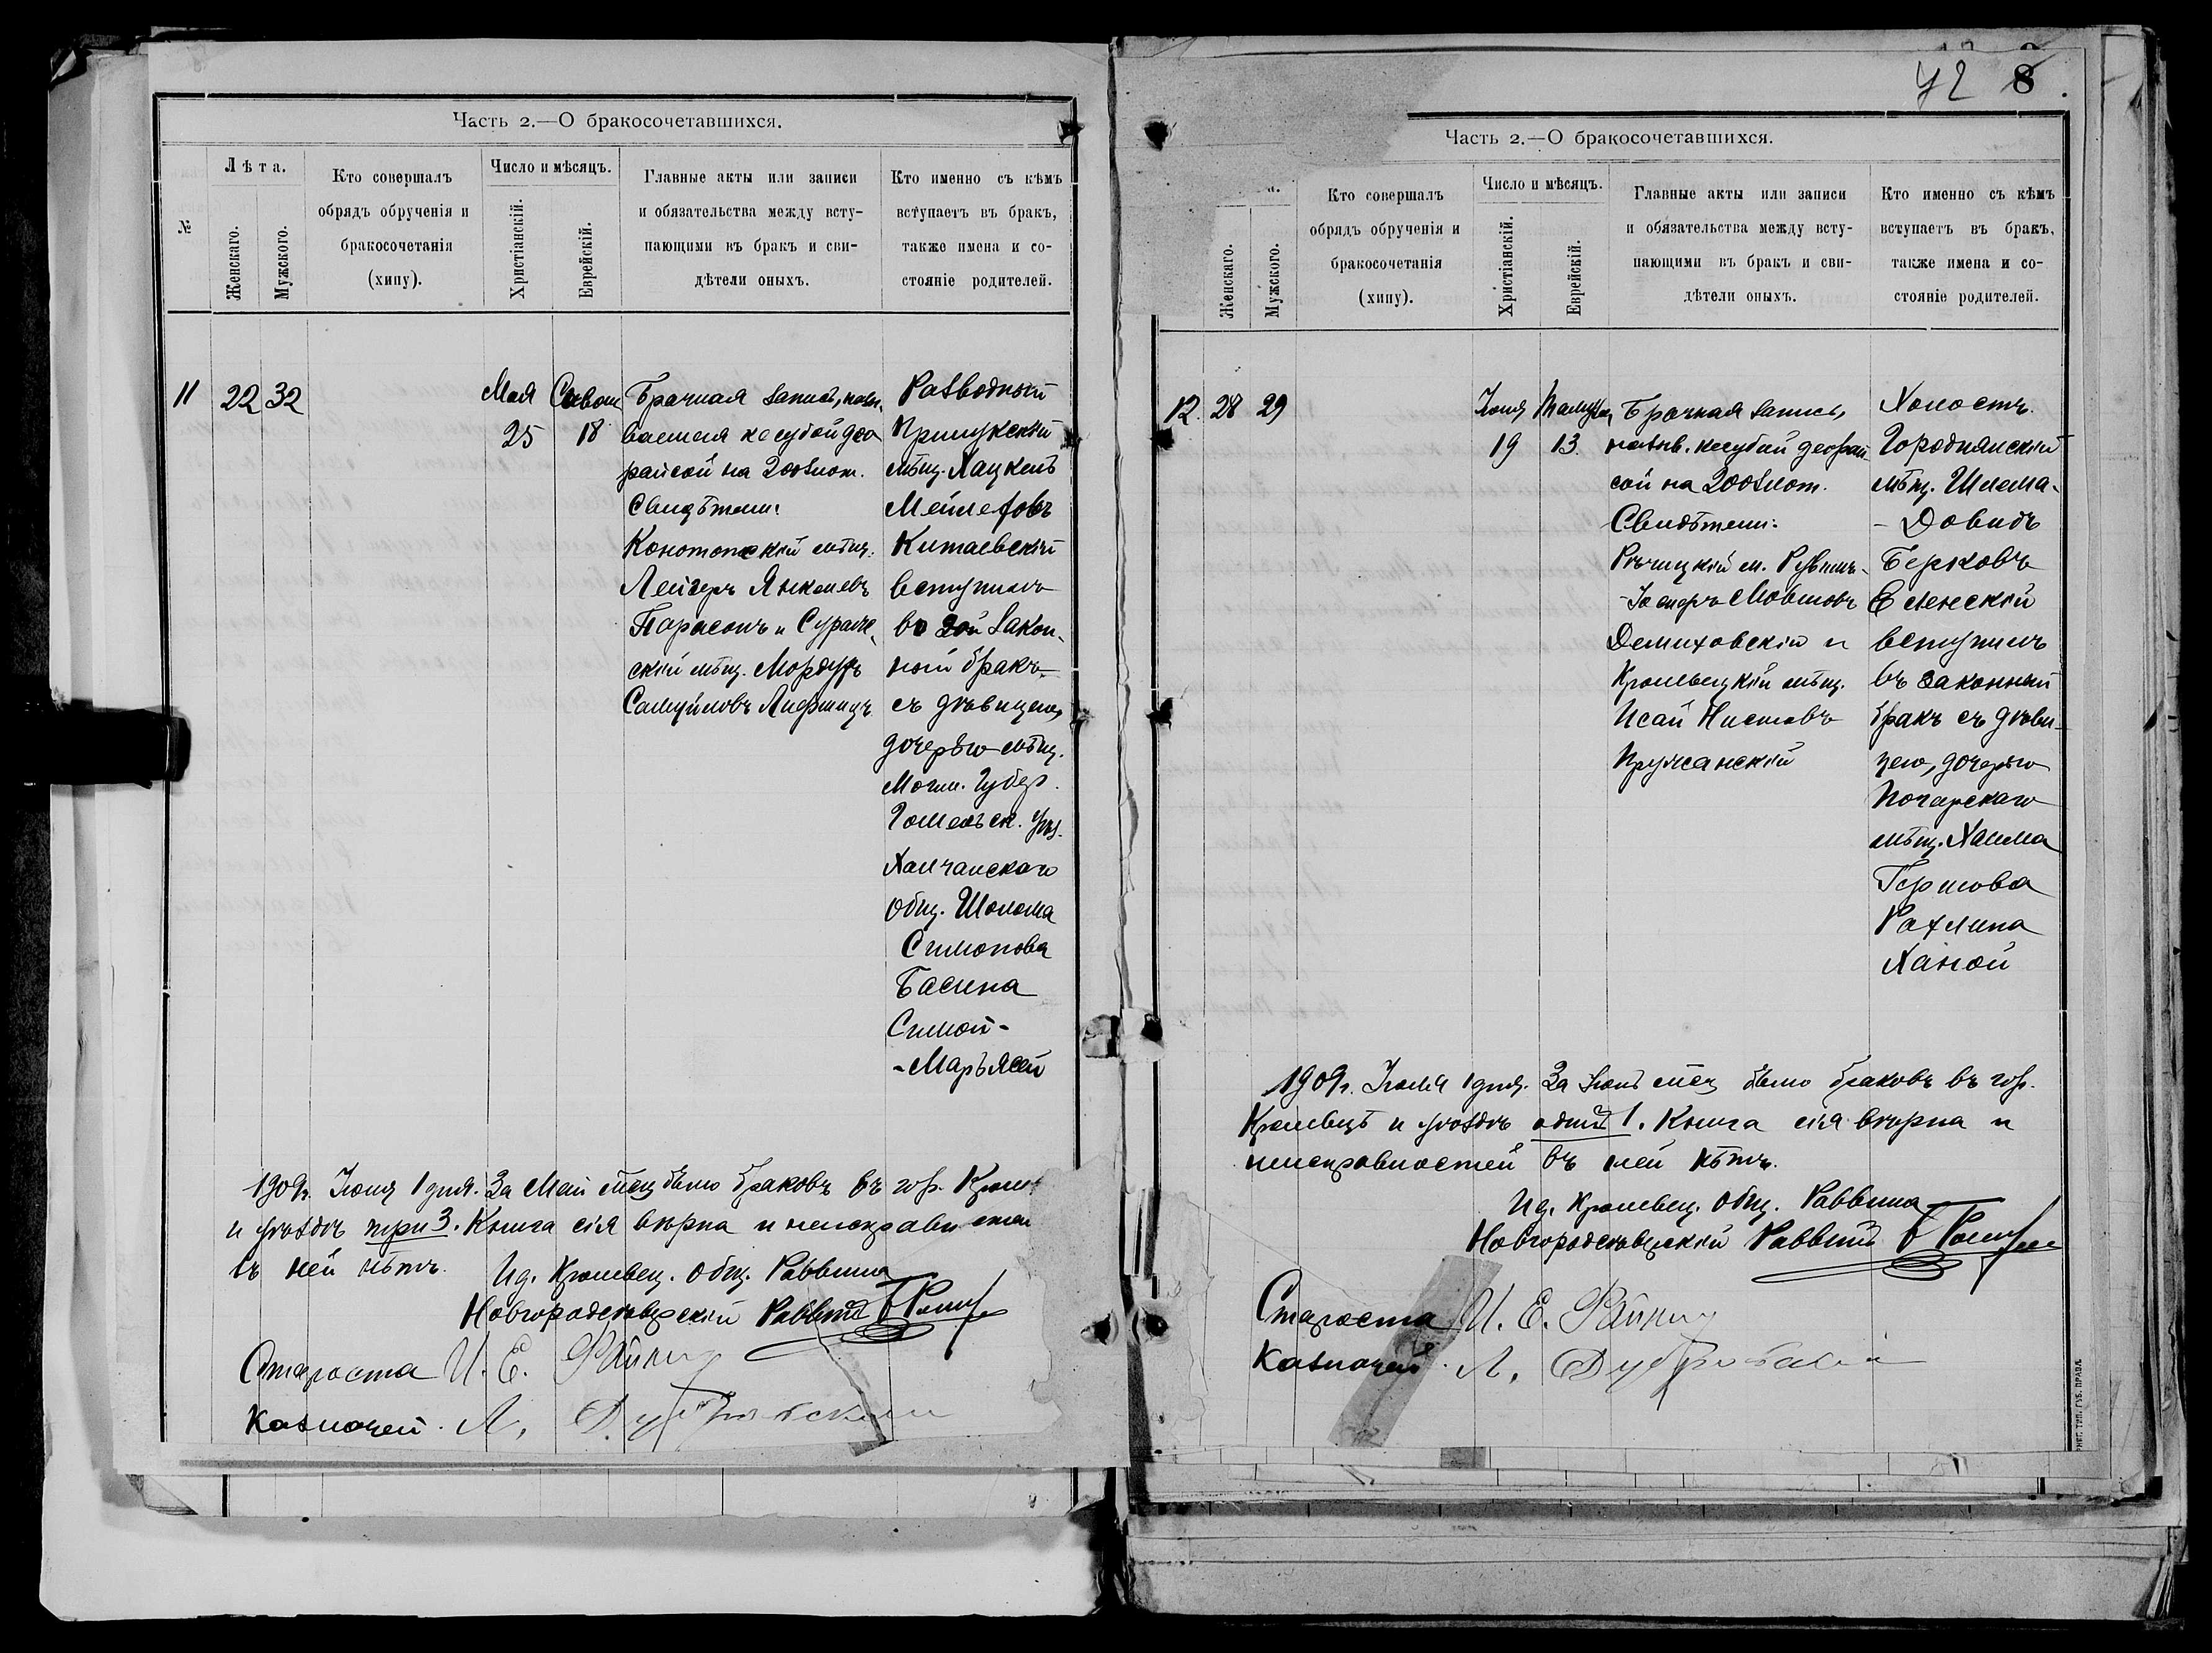 Часть 2.—О бракосочетавшихся.
№
Лѣта.
Женскаго.
Мужского.
Кто совершалъ
обрядъ обрученія и
бракосочетанія
(хипу).
Число и мѣсяцъ.
Христіанскій.
Еврейскій.
Главные акты или записи
и обязательства между всту-
пающими въ бракъ и сви-
дѣтели оныхъ.
Кто именно съ кѣмъ
вступаетъ въ бракъ,
также имена и со-
стояніе родителей.
11
22
32
Мая
25
Сивон
18
Брачная запись, назы-
ваемая кесубой део
райсой на 200 злот.
Свидѣтели:
Конотопскій мѣщ.
Лейзеръ Янкелевъ
Парасонъ и Сураж-
скій мѣщ. Мордухъ
Самуйловъ Лифшицъ
Разводный
Прилукскій
мѣщ. Хацкель
Мейлеховъ
Китаевскій
вступилъ
во 2ой закон-
ный бракъ
съ дѣвицею,
дочерью мѣщ.
Могил. Губер.
Гомельск. уѣз.
Халчанскаго
общ. Шолома
Симонова
Басина
Симой-
-Марьясей
1909г. Іюня 1 дня. За Май мѣц было браковъ въ гор.
и уѣздѣ три 3. Книга сія вѣрна и
въ ней нѣтъ.
Ид. Кролевец. общ. Раввина
Новгородсѣверскій Раввинъ
Староста И. Е.
Казначей. Л. Дубровскій
42 8
Часть 2.—О бракосочетавшихся.
Женскаго.
Мужского.
Кто совершалъ
обрядъ обрученія и
бракосочетанія
(хипу).
Число и мѣсяцъ.
Христіанскій.
Еврейскій.
Главные акты или записи
и обязательства между всту-
пающими въ бракъ и сви-
дѣтели оныхъ.
Кто именно съ кѣмъ
вступаетъ въ бракъ,
также имена и со-
стояніе родителей.
12.
28
29
Іюня
19
Тамуза
13.
Брачная запись,
назыв. кесубой деорай-
сой на 200 злот.
Свидѣтели:
Рѣчицкій м. Рувинъ-
-Іосперъ Мовшовъ
Демиховскій и
Кролевецкій мѣщ.
Исай Нисловъ
Пружанскій
Холостъ.
Городнянскій
мѣщ. Шлема-
-Довидъ
Берковъ
Еленскій
вступилъ
въ законный
бракъ съ дѣви-
цею, дочерью
Погарскаго
мѣщ. Хаима
Гершова
Рахлина
Ханой
1909г. Іюля 1 дня. За Іюнь мѣц было браковъ въ гор.
Кролевцѣ и уѣздѣ одинъ 1. Книга сія вѣрна и
неисправностей въ ней нѣтъ.
Ид. Кролевец. общ. Раввина
Новгородсѣверскій Раввинъ
Староста И. Е.
Казначей. Л. Дубровскій
ТИП. ГУБ. ПРАВЛ.